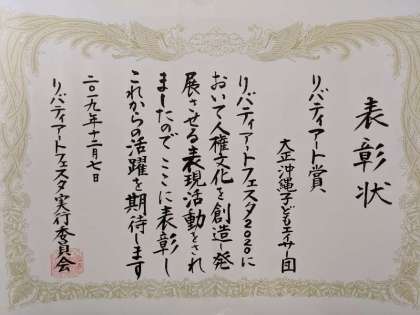 表彰状
リバティアート賞、
大正沖縄子どもエイサー団
リバティアートフェスタ2020に
おいて人権文化を創造し発
展させる表現活動をされ
ましたのでここに表彰し
これからの活躍を期待します
二〇一九年十二月七日
リバティアートフェスタ実行委員会